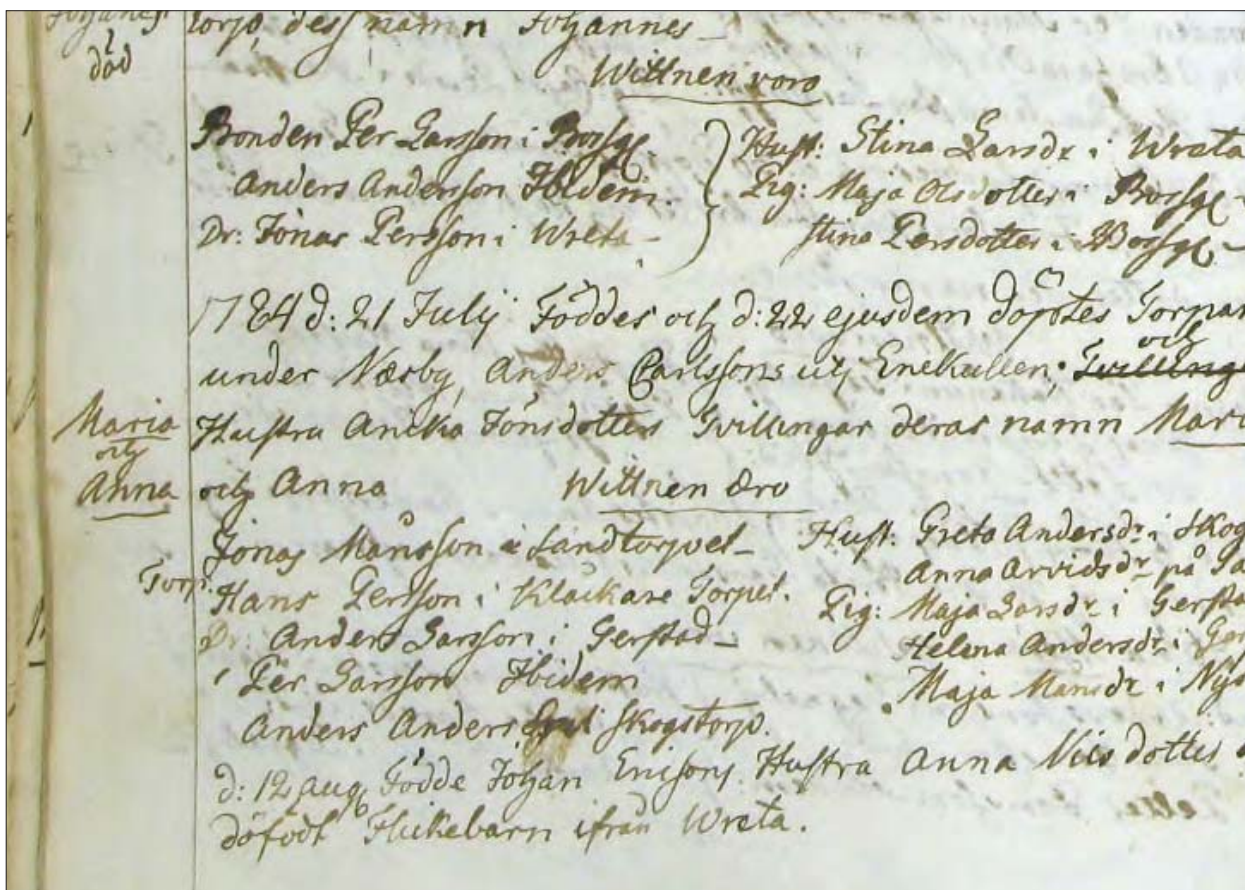 Johannes
död
torp, dess namn Johannes
Wittnen voro
Bonden Per Larsson i
Anders Andersson Ibidem.
Dr: Jonas Persson i Wreta
Hust: Stina Larsdr i Wreta
Pig: Maja Olsdotter i
Stina Persdotter i
1784 d: 21 Julij Föddes och d: 22 ejusdem döptes Torpar
under Næsby, Anders Carlssons uti Enekullen. och
Hustru Anika Jönsdotters Tvillingar deras namn Mari
Maria
och
Anna
och Anna
Wittnen äro
Jonas Månsson i Sandtorpet
Torp. Hans Persson i Klackare Torpet.
Dr: Anders Larsson i Gerstad
Per Larsson Ibidem
Anders Anders Skogstorp.
Hust: Greta Andersdr i Skog
Anna Arvidsdr på
Pig: Maja Larsdr i Gersta
Helena Andersdr i Ger
Maja Månsdr i Nys
d: 12 Aug Födde Johan Ericsons Hustru Anna Nilsdotter
döfödt Flickebarn ifrån Wreta.